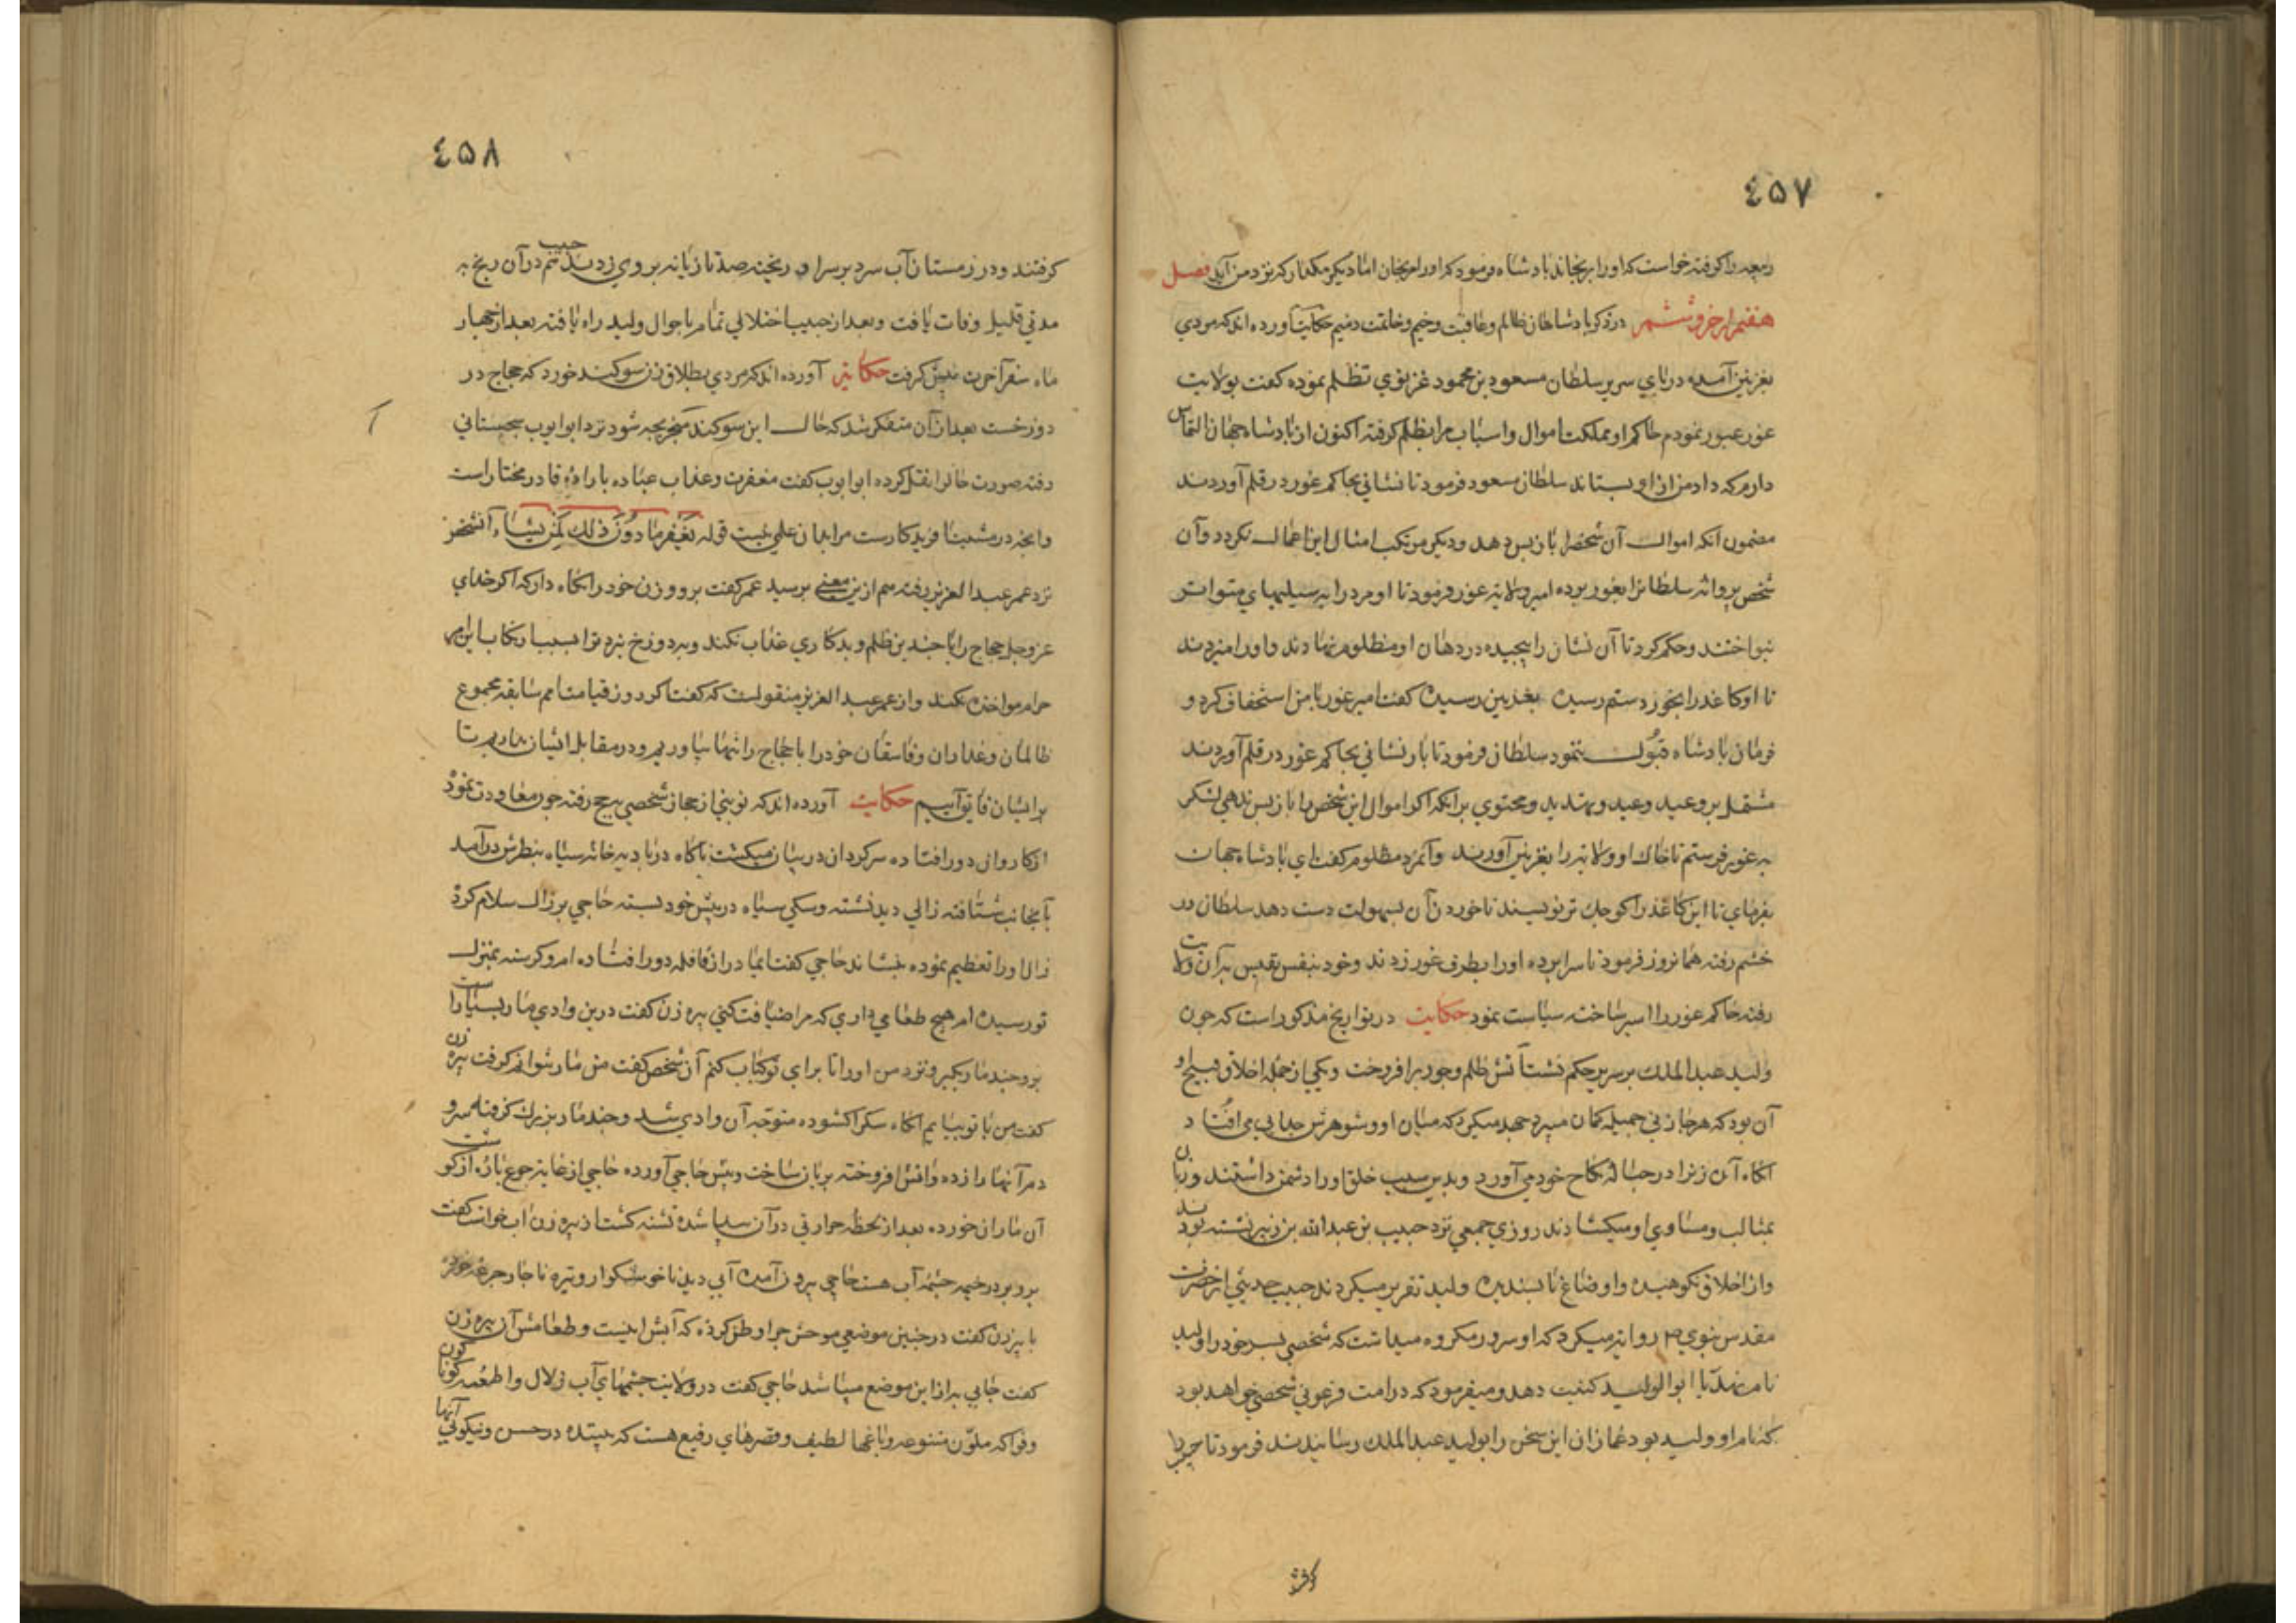 ٤٥٧
رمچه را گرفته خواست که او را برنجاند پادشاه فرمود که او را مرنجان اما دیگر مگذار که نزد من آید فصل
هفتم از جزو ششم در ذکر پادشاهان ظالم و عاقبت وخیم و خاتمت دمیم حکایت آورده اند که مردی
بغزنین آمده در پای سریر سلطان مسعود بن محمود غزنوی تظلم نموده گفت بولایت
غور عبور نمودم حاکم او مملکت اموال و اسباب مرا بظلم گرفته اکنون از پادشاه جهان التماس
دارم که داد من از او بستاند سلطان مسعود فرمود تا نشانی بحاکم غور در قلم آوردند
مضمون آنکه اموال آن شخص باز پس دهد و دیگر مرتکب امثال این اعمال نکردد و آن
شخص پروانه سلطانرا بغور برده امیر ولایه غور فرمود تا او مرد را به سیلیهای متواتر
بنواختند و حکم کرد تا آن نشان را پیچیده در دهان او مظلوم نهادند و او را میزدند
تا او کاغذ را بخورد ستم رسیده بغزنین رسیده گفت امیر غور با من استخفاف کرد و
فرمان پادشاه قبول ننمود سلطان فرمود تا بار نشانی بحاکم غور در قلم آوردند
مشتمل بر وعید و عید و تهدید و محتوی بر آنکه اگر اموال این شخص را باز پس ندهی لشکر
به غور فرستم تا خاک او ولایه را بغزنین آورند و آنمرد مظلوم گفت ای پادشاه جهان
بفرمای تا این کاغذ را کوچک تر نویسند تا خوردن آن بسهولت دست دهد سلطان در
خشم رفته همانروز فرمود تا سراپرده او را بطرف غور زدند و خود بنفس نفیس به آن ولایت
رفته حاکم غور را اسیر ساخته سیاست نمود حکایت در تواریخ مذکور است که چون
ولید عبد الملک بر سریر حکم نشست آتش ظلم و جور برافروخت و یکی از جمله اخلاق قبیح او
آن بود که هر جا زنی جمیله گمان میبرد جهد میکرد که میان او و شوهرش جدایی می افتاد
آنگاه آن زنرا در حباله نکاح خود می آورد و بدین سبب خلق او را دشمن داشتند و زبان
بمثالب و مساوی او میکشادند روزی جمعی نزد حبیب بن عبدالله بن زبیر نشسته بودند
و از اخلاق نکوهیده و اوضاع ناپسندیده ولید تقریر میکردند حبیب حدیثی از حضرت
مقدس نبوی ص روایه میکرد که او سرور مکروه میداشت که شخصی پسر خود را ولید
نام نهد یا ابو الولید کنیت دهد و میفرمود که در امت فرعونی شخصی خواهد بود
که نام او ولید بود غمازان این سخن را بولید عبد الملک رسانیدند فرمود تا حبیب را
٤٥٨
گرفتند و در زمستان آب سرد بر سر او ریخته صد تازیانه بر وی زدند حبیب هم در آن رنج به
مدتی قلیل وفات یافت و بعد از حبیب اختلالی تمام باحوال ولید راه یافته بعد از چهار
ماه سفر آخرت پیش گرفت حکایة آورده اند که مردی بطلاق زن سوگند خورد که حجاج در
دوزخست بعد از آن متفکر شد که حال این سوگند منجر بچه شود نزد ابو ایوب سجستانی
رفته صورت حال را نقل کرده ابو ایوب گفت مغفرت و عذاب عباد باراده قادر مختار است
و انچه در مشیت آفریدگارست مرا بدان علمی نیست قوله یغفر ما دون ذلک لمن یشاء آنشخص
نزد عمر عبد العزیز رفته هم ازین معنی پرسید عمر گفت برو و زن خود را نگاه دار که اگر خدای
عز و جل حجاج را با چندین ظلم و بدکاری عذاب نکند و بدوزخ نبرد ترا بسبب ارتکاب این امر
حرام مواخذه نکند و از عمر عبد العزیز منقولست که گفت اگر در روز قیامت امم سابقه مجموع
ظالمان و غداران و فاسقان خود را با حجاج را تنها بیاوریم و در مقابل ایشان بداریم تا
بر ایشان فایق آییم حکایت آورده اند که نوبتی از حجاز شخصی بحج رفته چون معاودت نمود
از کاروان دور افتاده سرگردان در بیابان میگشت ناگاه در بادیه خانه سیاه بنظرش درآمد
بآنجانب شتافته زالی دید نشسته و سگی سیاه در پیش خود بسته حاجی بر زال سلام کرد
زال او را تعظیم نموده بنشاند حاجی گفت ایمادر از قافله دور افتاده ام و گرسنه بمنزل
تو رسیده ام هیچ طعامی داری که مرا ضیافت کنی پیره زن گفت درین وادی مار بسیار است
برو چند مار بگیر و نزد من اور تا برای تو کباب کنم آن شخص گفت من مار نتوانم گرفت پیره زن
گفت من با تو بیایم آنگاه سگ را گشوده متوجه آن وادی شد و چند مار بزرگ گرفته سر و
دم آنها را زده و آتش افروخته بریان ساخت و پیش حاجی آورده حاجی از غایة جوع پاره از گوشت
آن ماران خورده بعد از لحظه حرارتی در آن پیدا شده تشنه گشت از پیره زن اب خواست گفت
برو بر در خیمه چشمه آب هست حاجی بیرون آمده آبی دید ناخوشگوار و تیره ناچار جرعه خورده
با پیرزن گفت در چنین موضعی موحش چرا وطن کرده که آبش اینست و طعامش آن پیره زن
گفت جایی به از این موضع میباشد حاجی گفت در ولایت چشمهای آب زلال و اطعمه گوناگون
و فواکه ملون متنوعه و باغها لطیف و قصرهای رفیع هست که بیننده در حسن و نیکوئی آنها